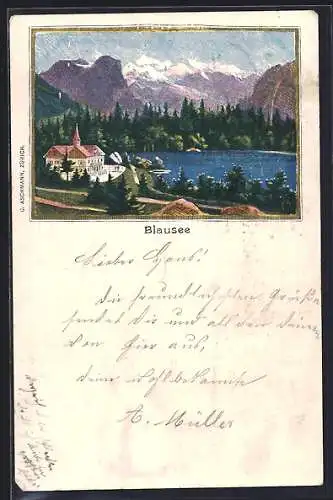 G. ASCHMANN, ZÜRICH.
Blausee
Lieber Hans!
Die freundlichsten Grüße
sendet Dir und all den deinen
von hier aus,
deine wohlbekannte
A. Müller